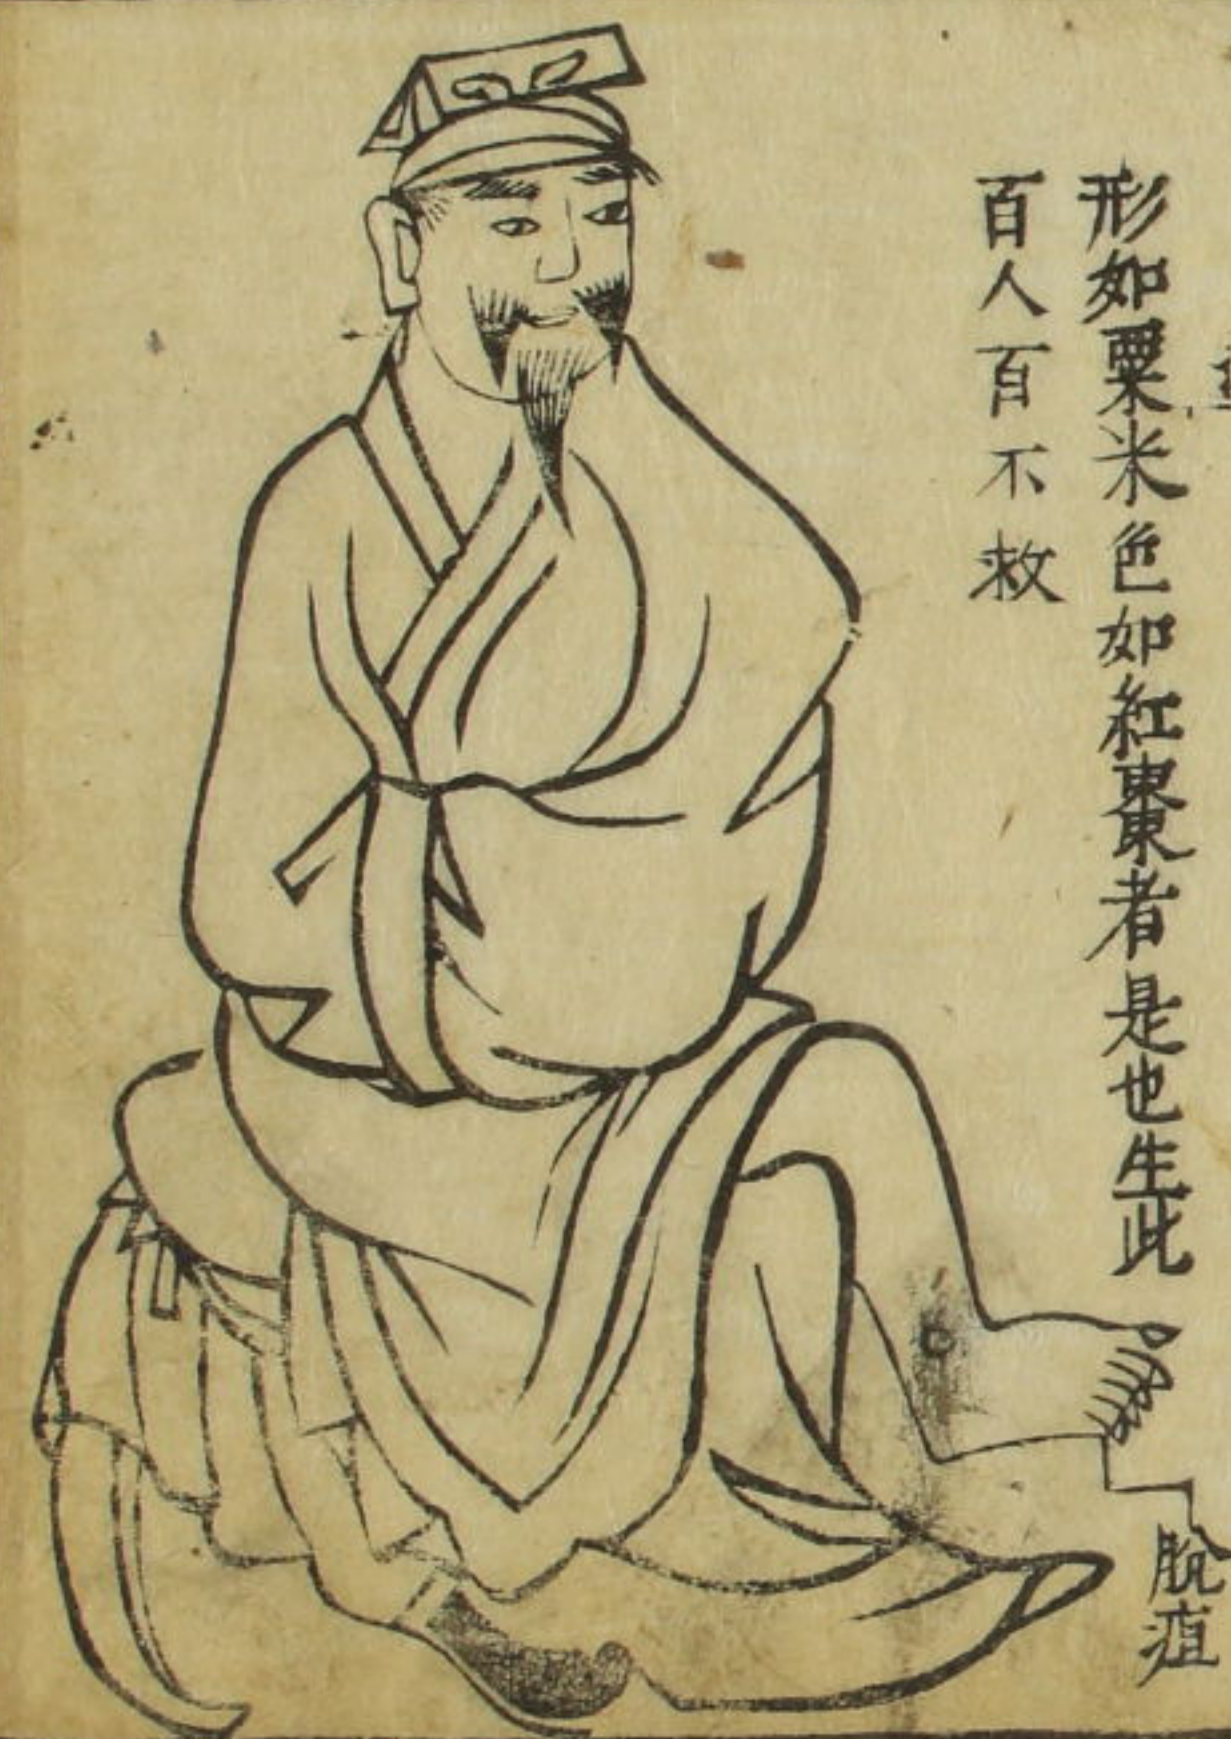 形如粟米色如紅棗者是也生此
百人百不救
脫疽